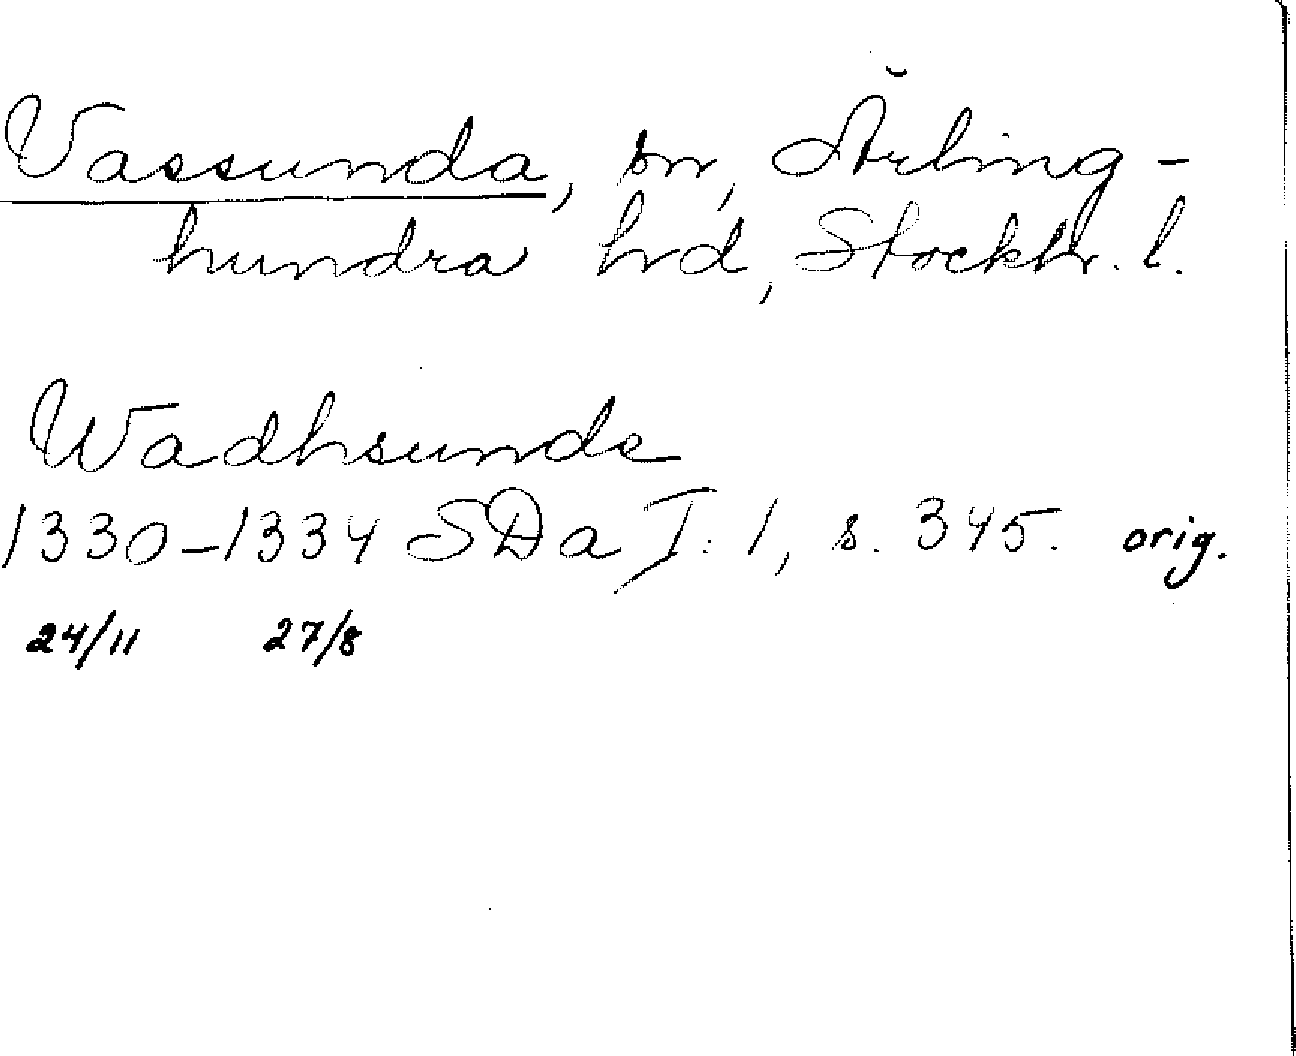 Vassunda, sn, Ärling-
hundra hd, Stockh. l.
Wadhsunde
1330-1334 SDa I:1, s. 345. orig.
24/11 27/8